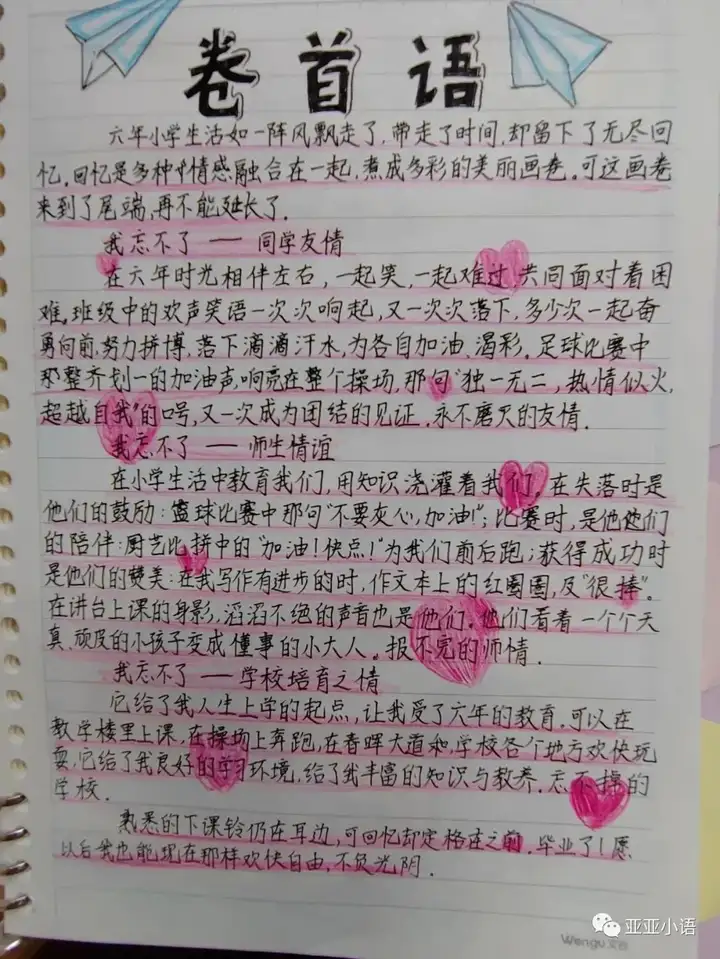 卷首语
六年小学生活如一阵风飘走了,带走了时间,却留下了无尽回
忆,回忆是多种情感融合在一起,煮成多彩的美丽画卷。可这画卷
来到了尾端,再不能延长了.
我忘不了——同学友情
在六年时光相伴左右,一起笑,一起难过,共同面对着困
难,班级中的欢声笑语一次次响起,又一次次落下,多少次一起奋
勇向前,努力拼博,落下滴滴汗水,为各自加油、渴彩。足球比赛中
那整齐划一的加油声,响亮在整个操场,那句"独一无二,热情似火,
超越自我"的口号,又一次成为团结的见证,永不磨灭的友情.
我忘不了——师生情谊
在小学生活中教育我们,用知识浇灌着我们,在失落时是
他们的鼓励:篮球比赛中那句"不要灰心,加油!";比赛时,是他她们
的陪伴:厨艺比拼中的"加油!快点!"为我们前后跑;获得成功时
是他们的赞美:在我写作有进步的时,作文本上的红圈圈,及"很棒"。
在讲台上课的身影,滔滔不绝的声音也是他们。他们看着一个个天
真,顽皮的小孩子变成懂事的小大人。报不完的师情.
我忘不了——学校培育之情
它给了我人生上学的起点,让我受了六年的教育.可以在
教学楼里上课,在操场上奔跑,在春晖大道和学校各个地方欢快玩
耍,它给了我良好的学习环境,给了我丰富的知识与教养.忘不掉的
学校.
熟悉的下课铃仍在耳边,可回忆却定格在之前.毕业了!愿
以后我也能现在那样欢快自由,不负光阴.
Wengu 文谷
亚亚小语